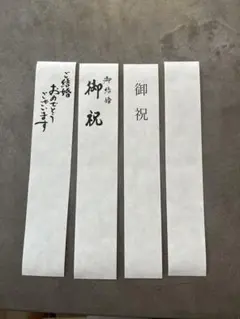 ご結婚
おめでとう
ございます
御結婚
御祝
御祝